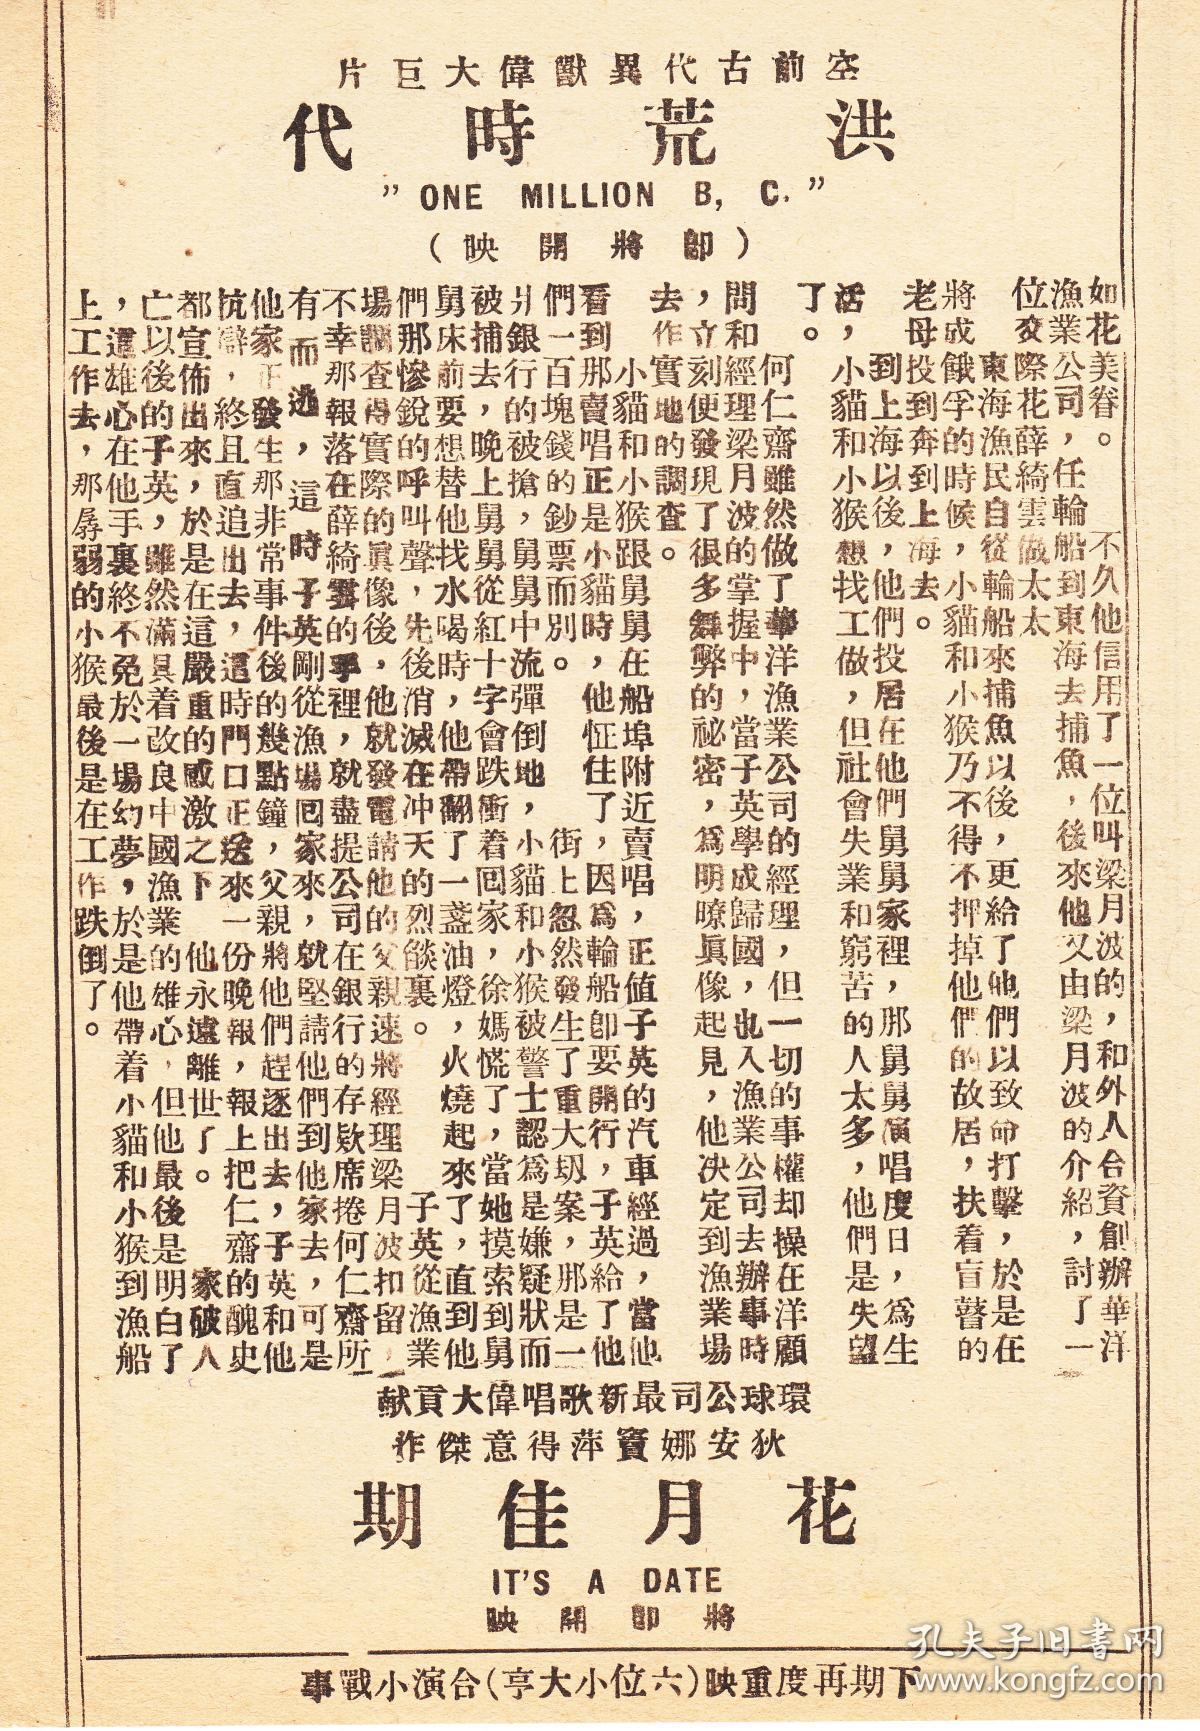 空前古代異獸偉大巨片
洪荒時代
"ONE MILLION B, C."
(即將開映)
如花美眷。 不久他信用了一位叫梁月波的，和外人合資創辦華洋
漁業公司，任輪船到東海去捕魚，後來他又由梁月波的介紹，討了一
位交際花薛綺雲做太太
東海漁民自從輪船來捕魚以後，更給了他們以致命打擊，於是在
將成餓孚的時候，小貓和小猴乃不得不押掉他們的故居，扶着盲瞽的
老母投到奔到上海去。
到上海以後，他們投居在他們舅舅家裡，那舅舅演唱度日，爲生
活，小貓和小猴想找工做，但社會失業和窮苦的人太多，他們是失望
了。
何仁齋雖然做了華洋漁業公司的經理，但一切的事權却操在洋顧
問和經理梁月波的掌握中，當子英學成歸國，也入漁業公司去辦事時
，立刻便發現了很多舞弊的祕密，爲明瞭眞像起見，他決定到漁業場
去作實地的調查。
小貓和小猴跟舅舅在船埠附近賣唱，正値子英的汽車經過，當他
看到那賣唱正是小貓時，他怔住了，因爲輪船卽要開行，子英給了他
們一百塊錢的鈔票而別。 街上忽然發生了重大刼案，那是一
爿銀行的被搶，舅舅中流彈倒地，小貓和小猴被警士認爲是嫌疑狀而
被捕去，晚上舅舅從紅十字會跌衝着回家，徐媽慌了，當她摸索到舅
舅床前要想替他找水喝時，他帶翻了一盞油燈，火燒起來了，直到他
們那慘銳的呼叫聲，先後消滅在冲天的烈燄裏。 子英從漁業
場調查得實際的眞像後，他就發電請他的父親速將經理梁月波扣留，
不幸那報落在薛綺雲的手裡，就盡提公司在銀行的存欵席捲何仁齋所
有而逃，這時子英剛從漁場回家來，就堅請他們到他家去，可是
他家正發生那非常事件後的幾點鐘，父親將他們趕逐出去，子英和他
抗辯，終且直追出去，這時門口正送來一份晚報，報上把仁齋的醜史
都宣佈出來，於是在這嚴重的感激之下 他永遠離世了。 家破人
亡以後的子英，雖然滿具着改良中國漁業的雄心，但他最後是明白了
，這雄心在他手裏終不免於一場幻夢，於是他帶着小貓和小猴到漁船
上工作去，那孱弱的小猴最後是在工作跌倒了。
環球公司最新歌唱偉大貢献
狄安娜竇萍得意傑作
花月佳期
IT'S A DATE
將即開映
下期再度重映(六位小大亨)合演小戰事
孔夫子旧書网
www.kongfz.com